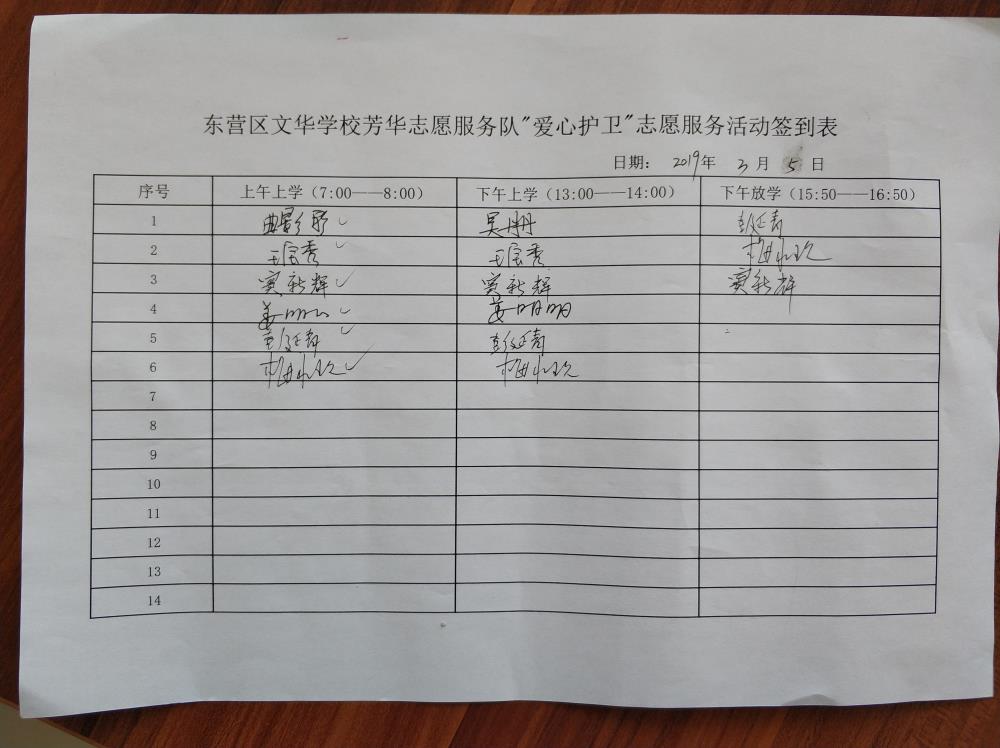 东营区文华学校芳华志愿服务队"爱心护卫"志愿服务活动签到表
日期： 2019年 3月 5日
序号 上午上学（7:00——8:00） 下午上学（13:00——14:00） 下午放学（15:50——16:50）
1 吴丹 彭延青
2 王宝秀 王宝秀
3 窦新辉 窦新辉 窦新辉
4 姜明明 姜明明
5 彭延青 彭延青
6
7
8
9
10
11
12
13
14